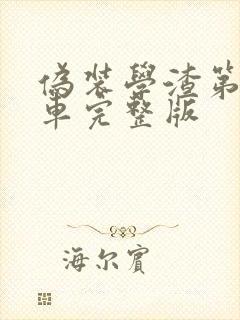 偽装學渣第
車完整版
海尔賓